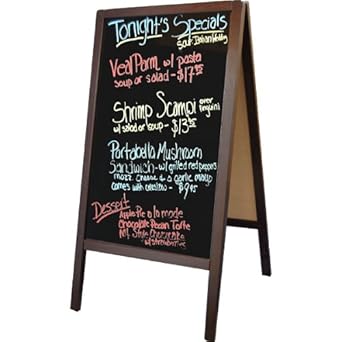 Tonight's Specials
Soup - Italian Wedding
Veal Parm w/ pasta
soup or salad - $17.95
Shrimp Scampi over linguini
w/ salad or soup - $13.95
Portabella Mushroom
Sandwich - w/ grilled red peppers
mozz. cheese & a garlic mayo
comes with coleslaw - $9.95
Dessert
Apple Pie a la mode
Chocolate Pecan Torte
NY Style Cheesecake
w/ strawberries